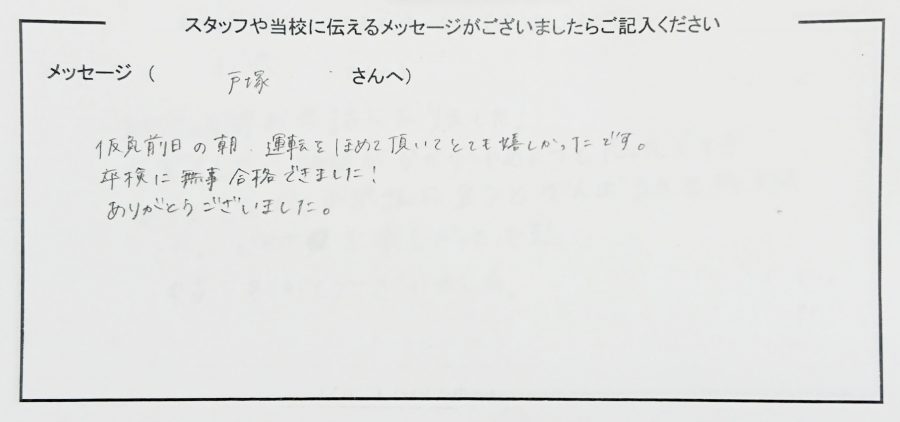 スタッフや当校に伝えるメッセージがございましたらご記入ください
メッセージ ( 戸塚 さんへ)
仮免前日の朝、運転をほめて頂いてとても嬉しかったです。
卒検に無事合格できました!
ありがとうございました。